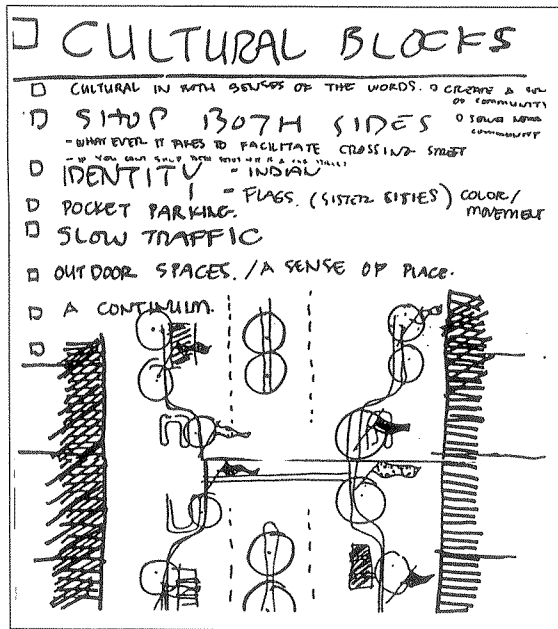 CULTURAL BLOCKS
CULTURAL IN BOTH SENSES OF THE WORDS. CREATE A
OF COMMUNITY
SHOP BOTH SIDES
COMMUNITY
- WHAT EVER IT TAKES TO FACILITATE CROSSING STREET
- IF YOU CAN'T SHOP BOTH
IDENTITY - INDIAN
- FLAGS. (SISTER CITIES) COLOR/
MOVEMENT
POCKET PARKING.
SLOW TRAFFIC
OUTDOOR SPACES. / A SENSE OF PLACE.
A CONTINUIM.